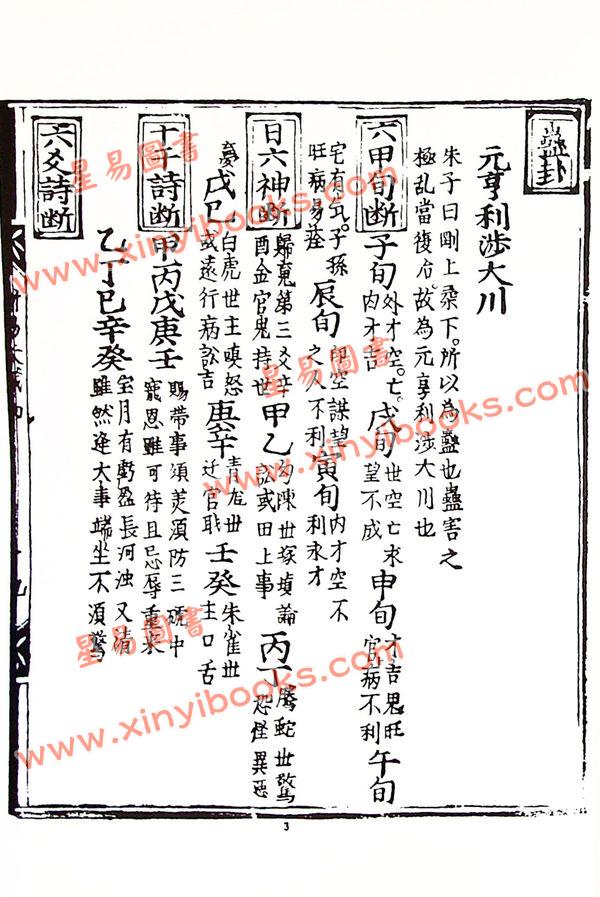 蠱卦
元亨利涉大川
朱子曰剛上柔下。所以為蠱也蠱害之
極乱當復治故為元亨利涉大川也
六甲旬断 子旬 外才空亡。内才吉 戌旬 世空亡求望不成 申旬 才吉鬼旺官病不利 午旬
宅有气。子孫旺病易痊 辰旬 空謀望之久不利 寅旬 内才空不利求才
日六神断 歸䰟第三爻辛酉金官鬼持世 甲乙 勾陳世塚墳論訟或田上事 丙丁 騰蛇世驚恐怪異惡
憂 戊己 白虎世主嗔怒或遠行病訟吉 庚辛 青龙世迁官职 壬癸 朱雀世主口舌
十干詩断 甲丙戊庚壬 賜帶事須美須防三中寵恩雖可待且忌辱重来
乙丁己辛癸 宝月有虧盈長河浊又清雖然逢大事端坐不須驚
六爻詩断
3
星易圖書
www.xinyibooks.com
星易圖書
www.xinyibooks.com
星易圖書
www.xinyibooks.com